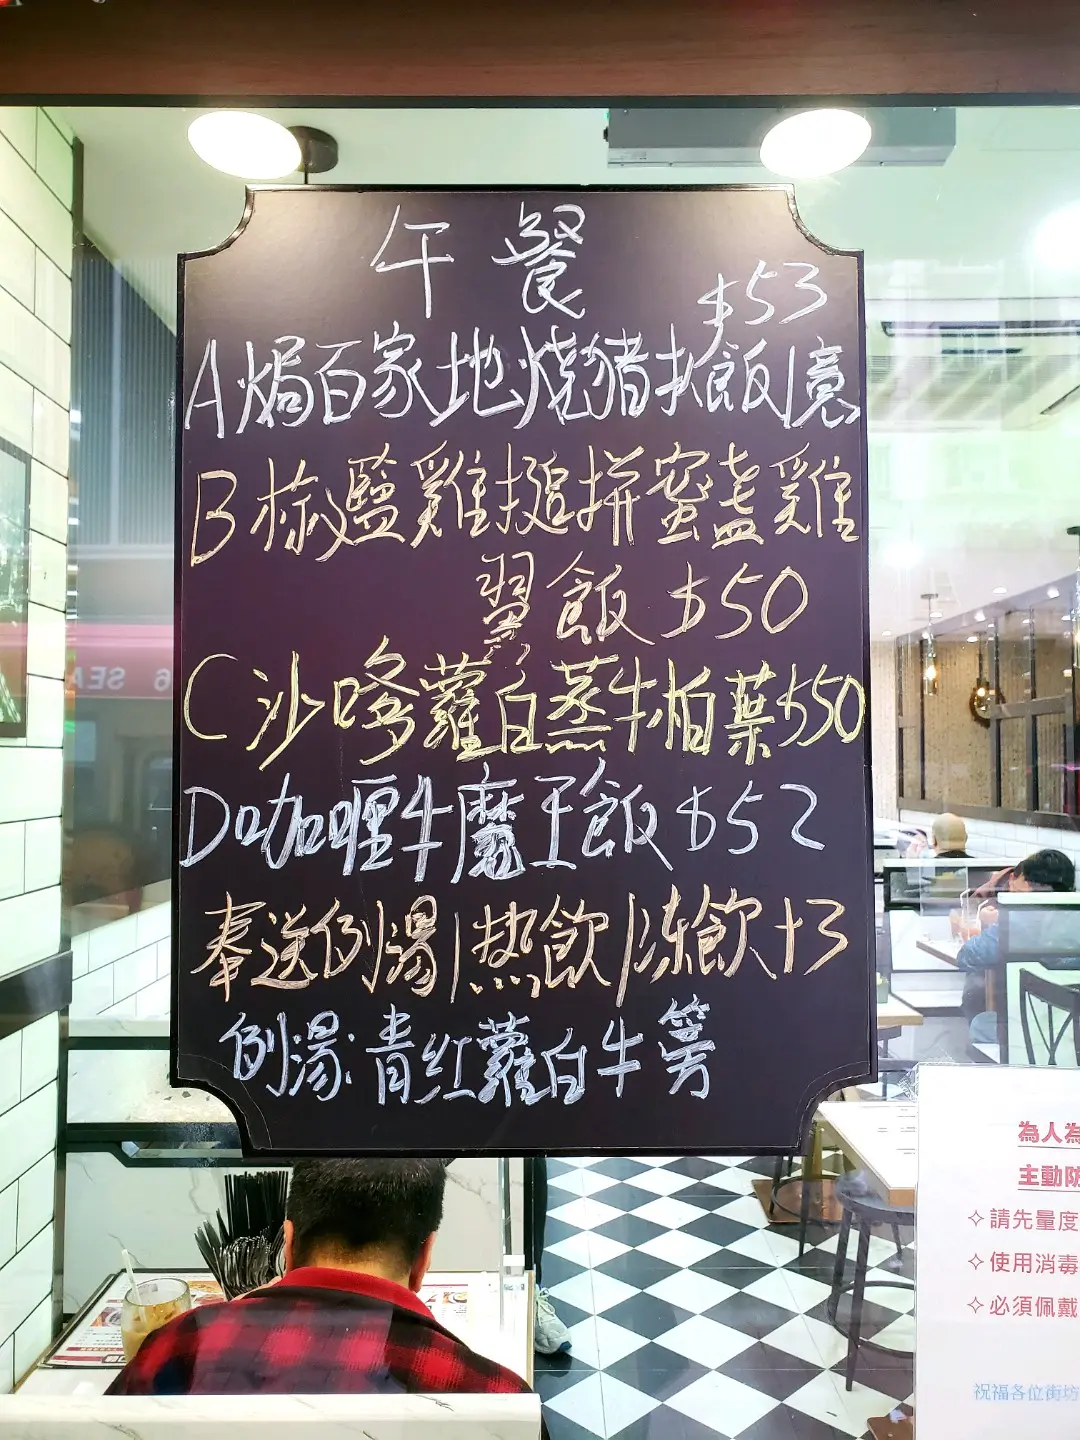 午餐
$53
A焗百家地燒豬扒飯
B椒鹽雞搥拼蜜盞雞
翼飯 $50
C沙嗲蘿白蒸牛柏葉$50
D咖喱牛魔王飯$52
奉送例湯/热飲/冻飲+3
例湯:青红蘿白牛
6 SEA
為人為
主動防
✧請先量度
✧使用消毒
✧必須佩戴
祝福各位街坊